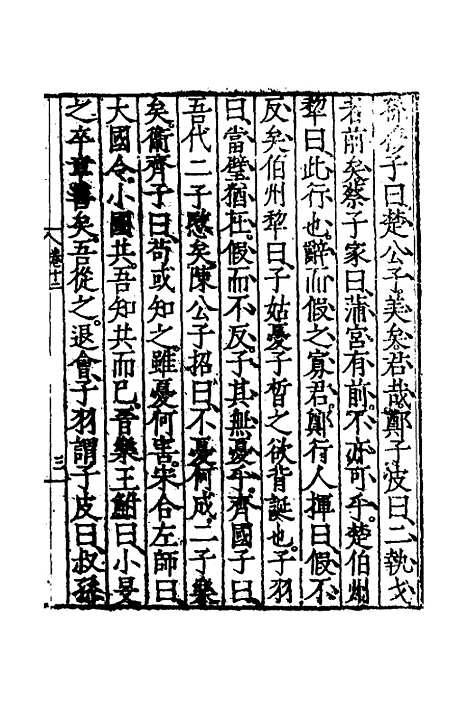 孫穆子曰楚公子美矣君哉鄭子皮曰二執戈
者前矣蔡子家曰蒲宮有前不亦可乎楚伯州
犂曰此行也辭而假之寡君鄭行人揮曰假不
反矣伯州犂曰子姑憂子皙之欲背誕也子羽
曰當璧猶在假而不反子其無憂乎齊國子曰
吾代二子愍矣陳公子招曰不憂何成二子樂
矣衛齊子曰苟或知之雖憂何害宋合左師曰
大國令小國共吾知共而已晉樂王鮒曰小旻
之卒章善矣吾從之退會子羽謂子皮曰叔孫
卷十二
三